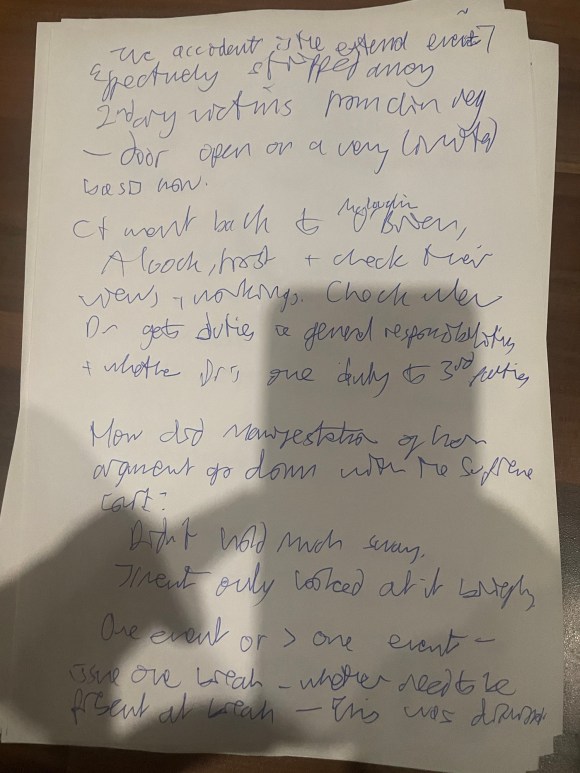 The accident is the external event
Effectively stripped away
2ndary victims from clin neg
— door open on a very limited
basis now.
Ct went back to McLoughlin v O'Brien,
Alcock, Frost + check their
views + workings. Check when
Dr gets duties ie general responsibilities,
+ whether Drs owe duty to 3rd parties
How did manifestation of harm
argment go down with the Supreme
Court:
Didn't hold much sway.
only looked at it briefly,
One event or > one event —
issue over breach — whether need to be
present at breach — This was